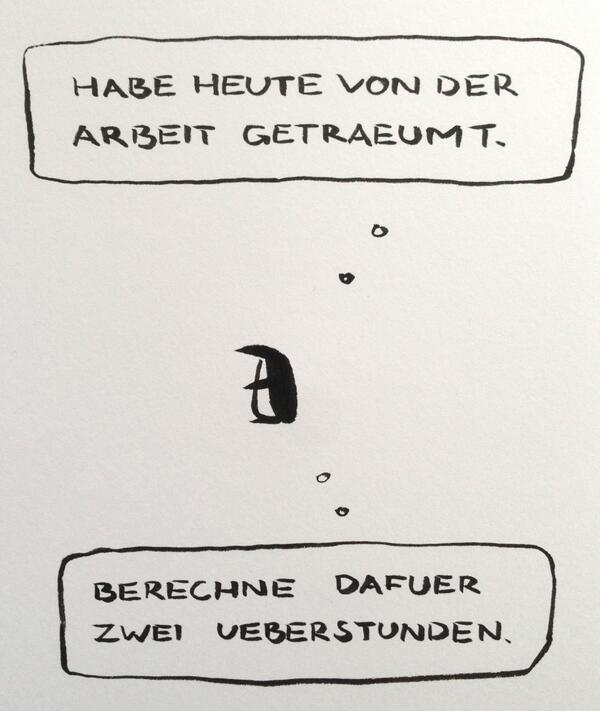 HABE HEUTE VON DER
ARBEIT GETRAEUMT.
BERECHNE DAFUER
ZWEI UEBERSTUNDEN.